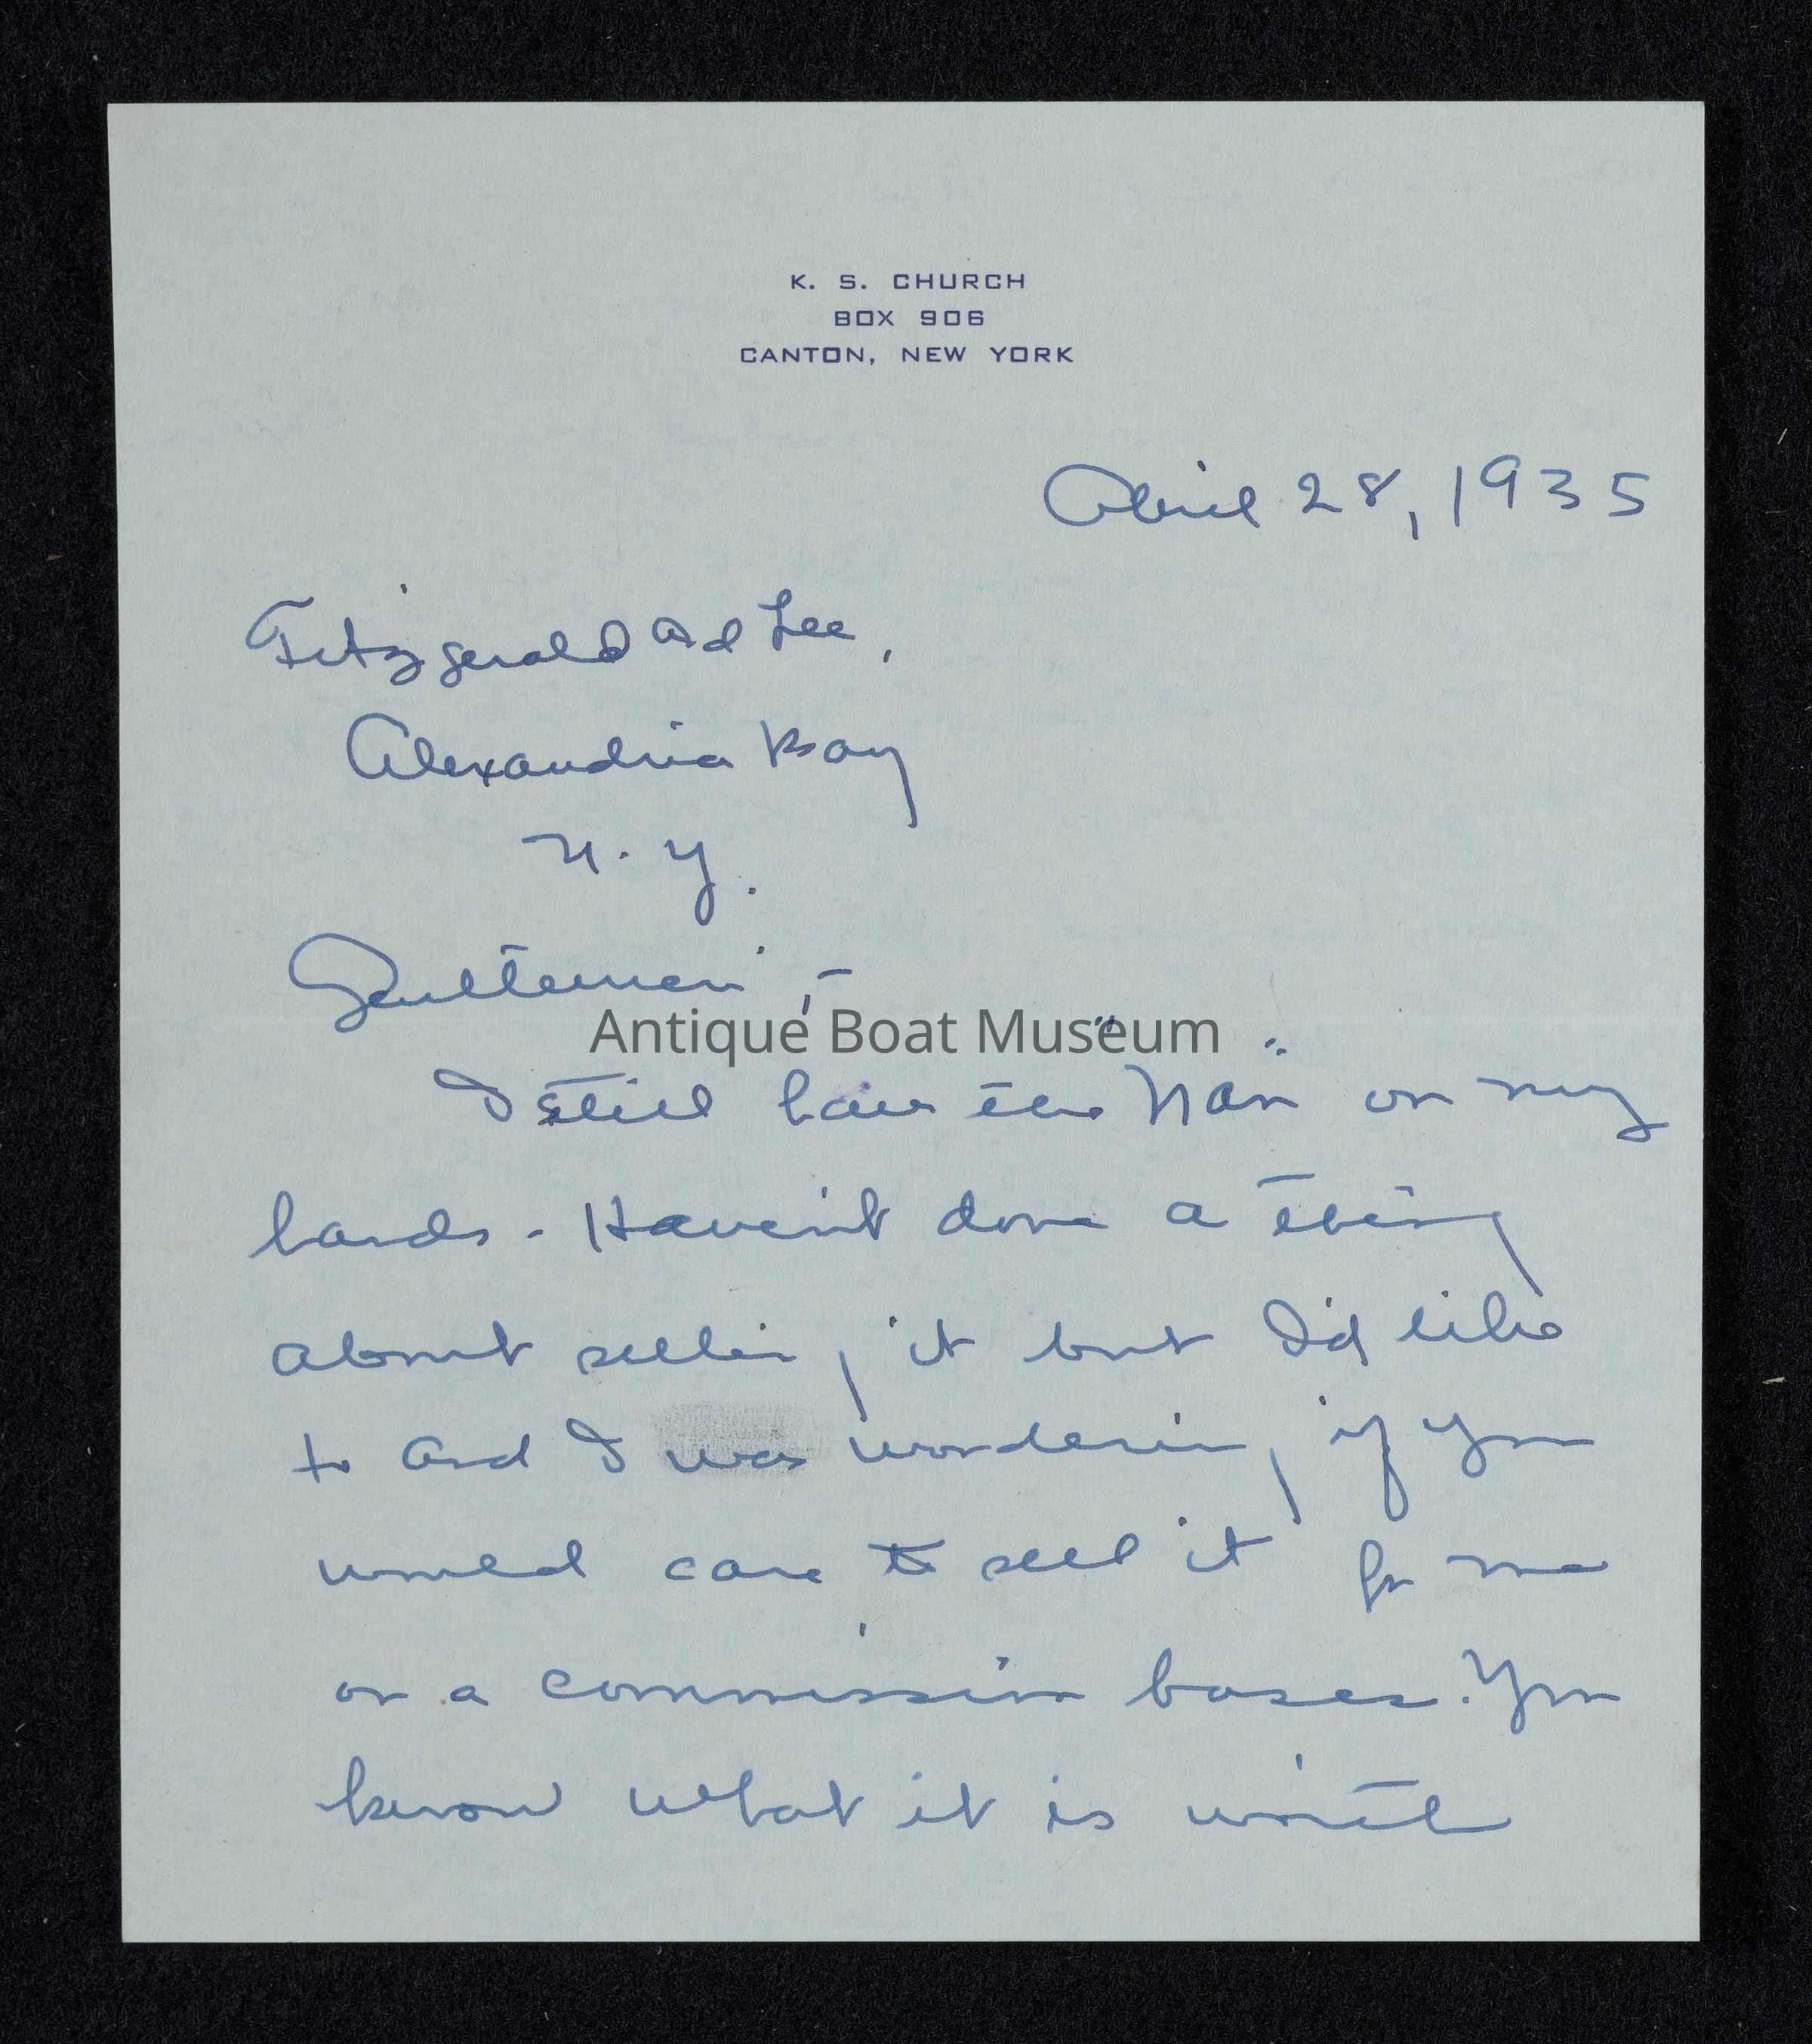 K. S. CHURCH
BOX 906
CANTON, NEW YORK
April 28, 1935
Fitzgerald and Lee,
Alexandria Bay
N. Y.
Gentlemen,-
Antique Boat Museum
I still have the "Nan" on my
hands. Haven't done a thing
about selling it but I'd like
to and I was wondering if you
would care to sell it for me
on a commission bases. You
know what it is worth